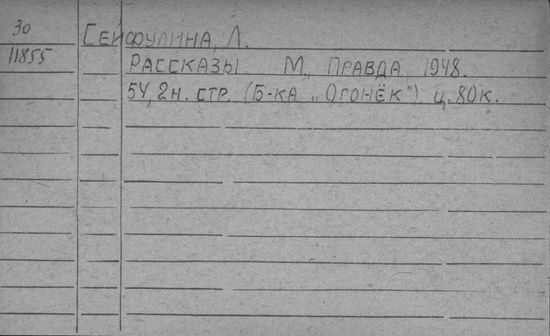 30 Сейфулина, Л.
11855 Рассказы. М., Правда, 1948.
54, 2н. стр. (Б-ка „Огонёк"). ц. 80к.